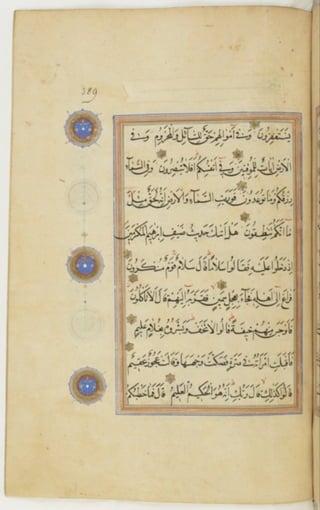 389
يستغفرون وفي اموالهم حق للسائل والمحروم وفي
الارض ايات للموقنين وفي انفسكم افلا تبصرون وفي السماء
رزقكم وما توعدون فورب السماء والارض انه لحق مثل
ما انكم تنطقون هل اتيك حديث ضيف ابرهيم المكرمين
اذ دخلوا عليه فقالوا سلاما قال سلام قوم منكرون
فراغ الى اهله فجاء بعجل سمين فقربه اليهم قال الا تأكلون
فاوجس منهم خيفة قالوا لا تخف وبشروه بغلام عليم
فاقبلت امرأته في صرة فصكت وجهها وقالت عجوز عقيم
قالوا كذلك قال ربك انه هو الحكيم العليم قال فما خطبكم